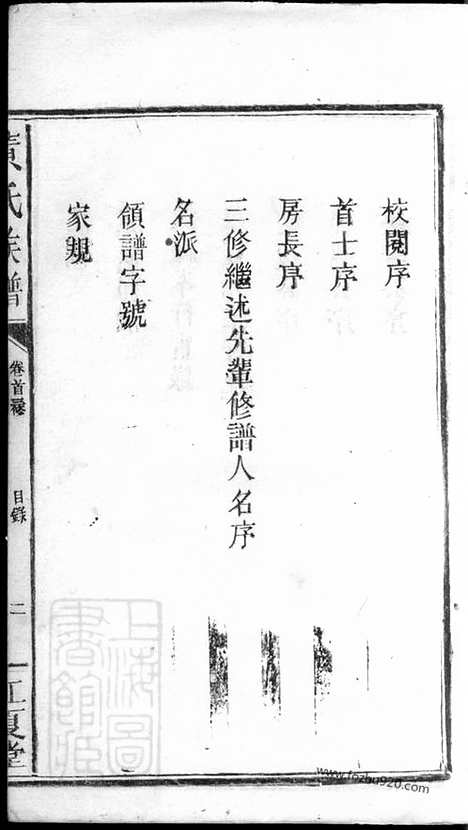 校閱序
首士序
房長序
三修繼述先輩修譜人名序
名派
領譜字號
家規
黃氏族譜
卷首
目錄
二
江夏堂
上海圖書館藏
www.fozhu920.com